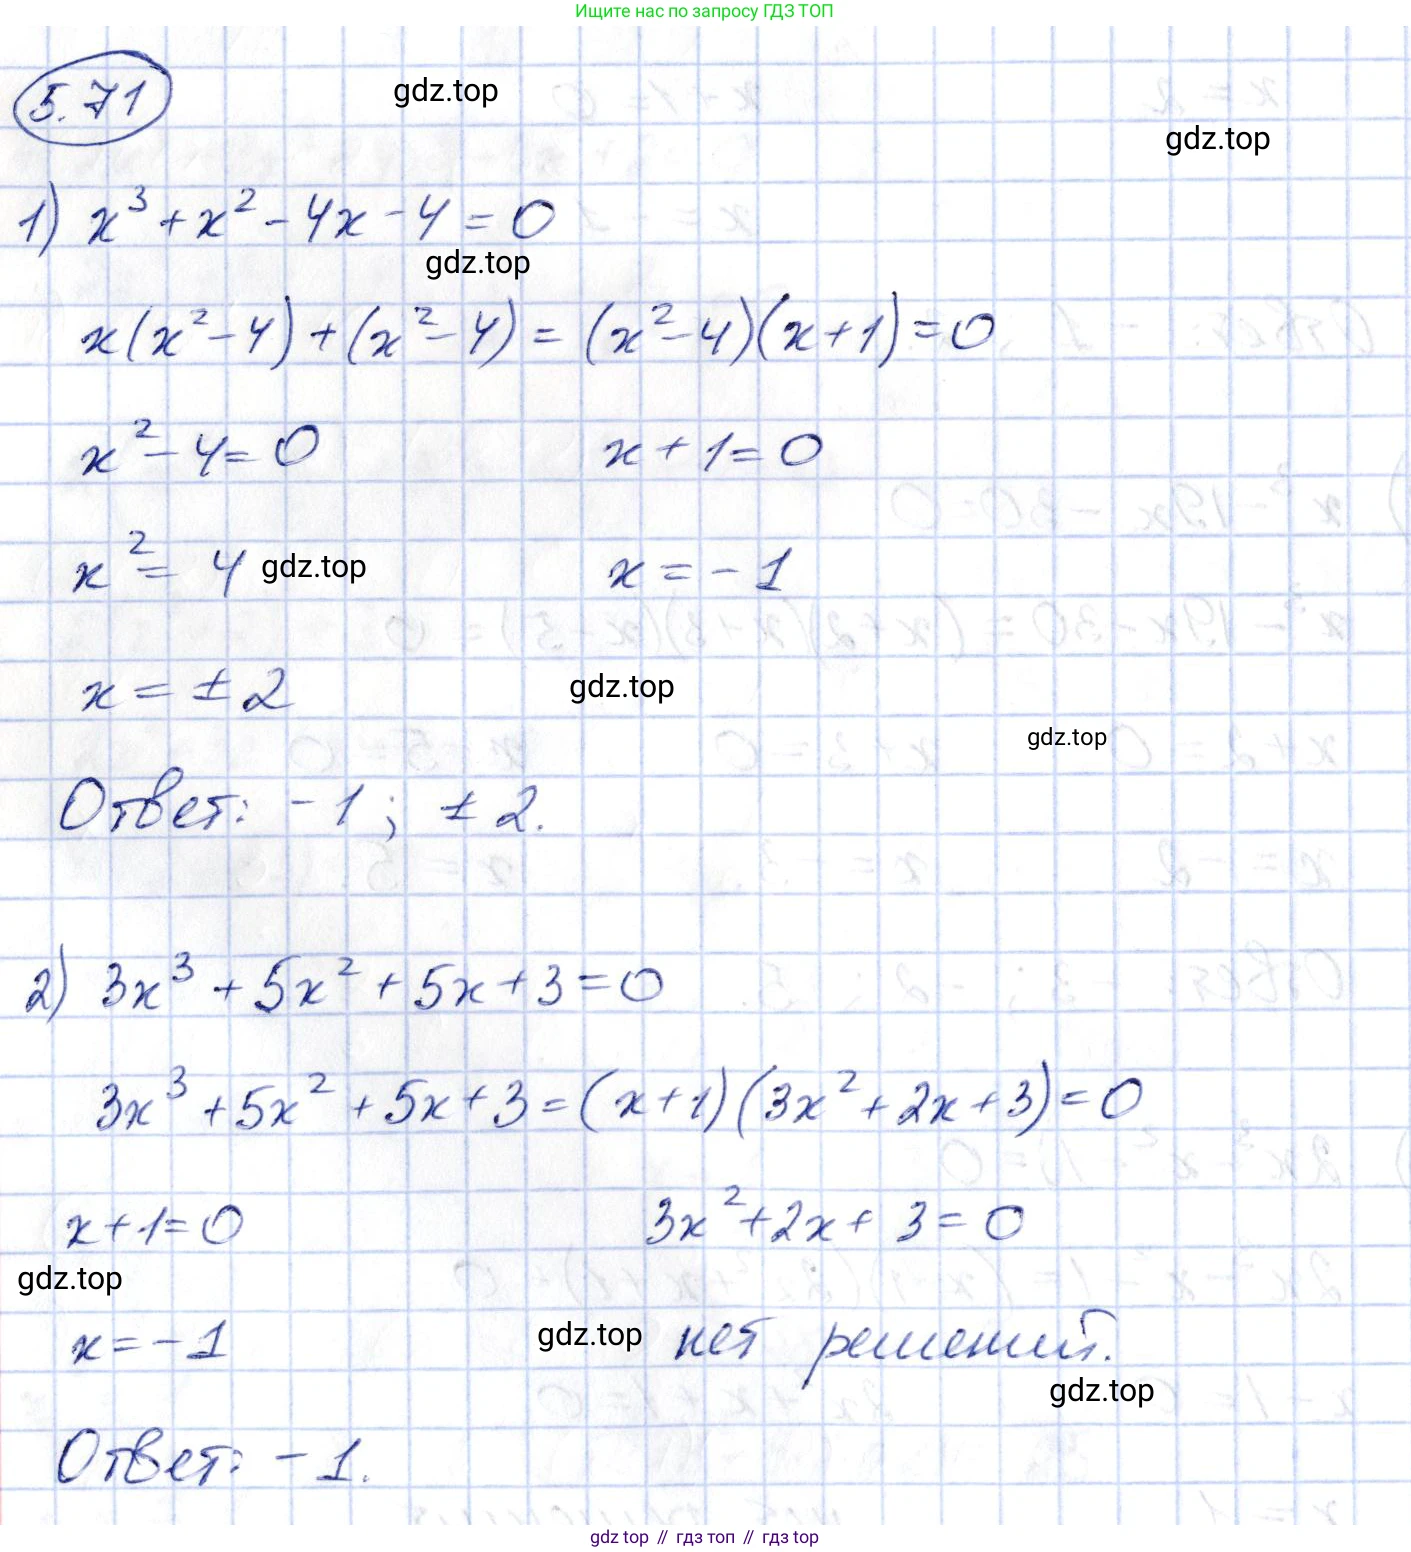 Ищите нас по запросу ГДЗ ТОП
5.71
gdz.top
gdz.top
1) x³ + x² - 4x - 4 = 0
gdz.top
x(x² - 4) + (x² - 4) = (x² - 4)(x + 1) = 0
x² - 4 = 0 x + 1 = 0
x² = 4 gdz.top x = - 1
x = ± 2 gdz.top
gdz.top
Ответ: - 1 ; ± 2.
2) 3x³ + 5x² + 5x + 3 = 0
3x³ + 5x² + 5x + 3 = (x + 1)(3x² + 2x + 3) = 0
x + 1 = 0 3x² + 2x + 3 = 0
gdz.top
x = - 1 gdz.top нет решений.
gdz.top
Ответ: - 1.
gdz top // гдз топ // гдз top